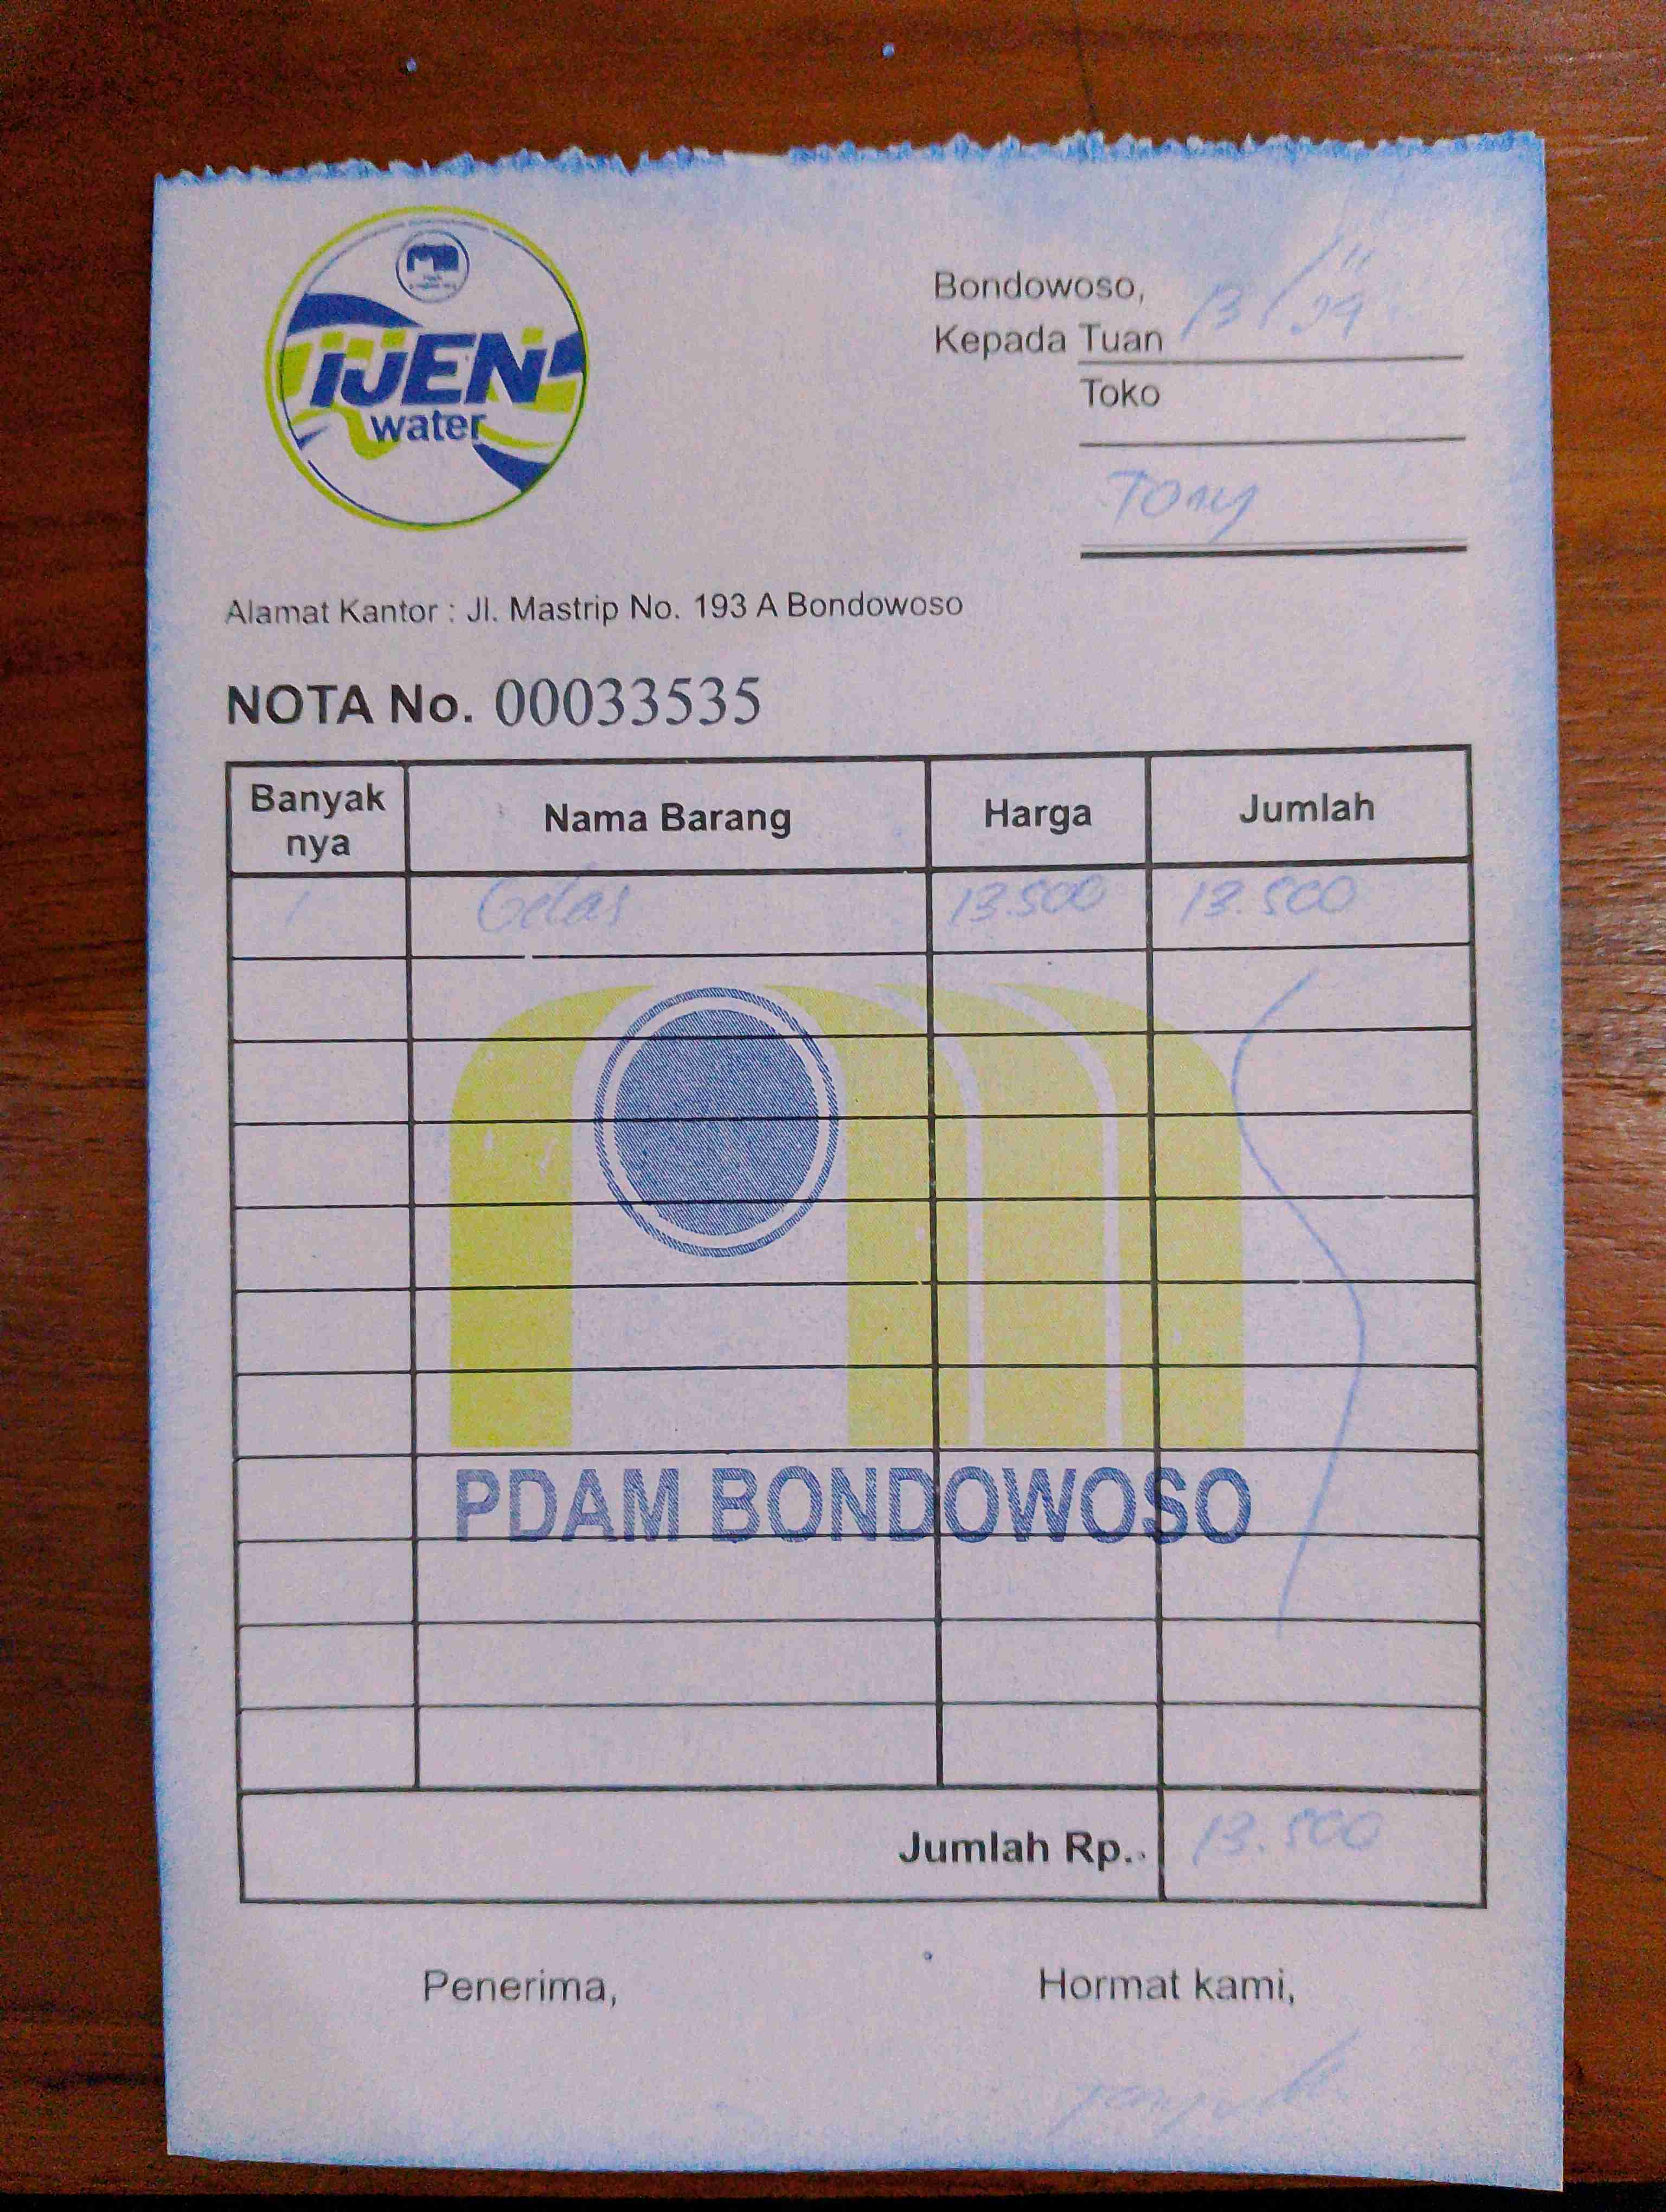 IJEN
water
Bondowoso, 13/11 24
Kepada Tuan
Toko
Tony
Alamat Kantor : Jl. Mastrip No. 193 A Bondowoso
NOTA No. 00033535
Banyak nya Nama Barang Harga Jumlah
1 Gelas 13.500 13.500
PDAM BONDOWOSO
Jumlah Rp.. 13.500
Penerima, Hormat kami,